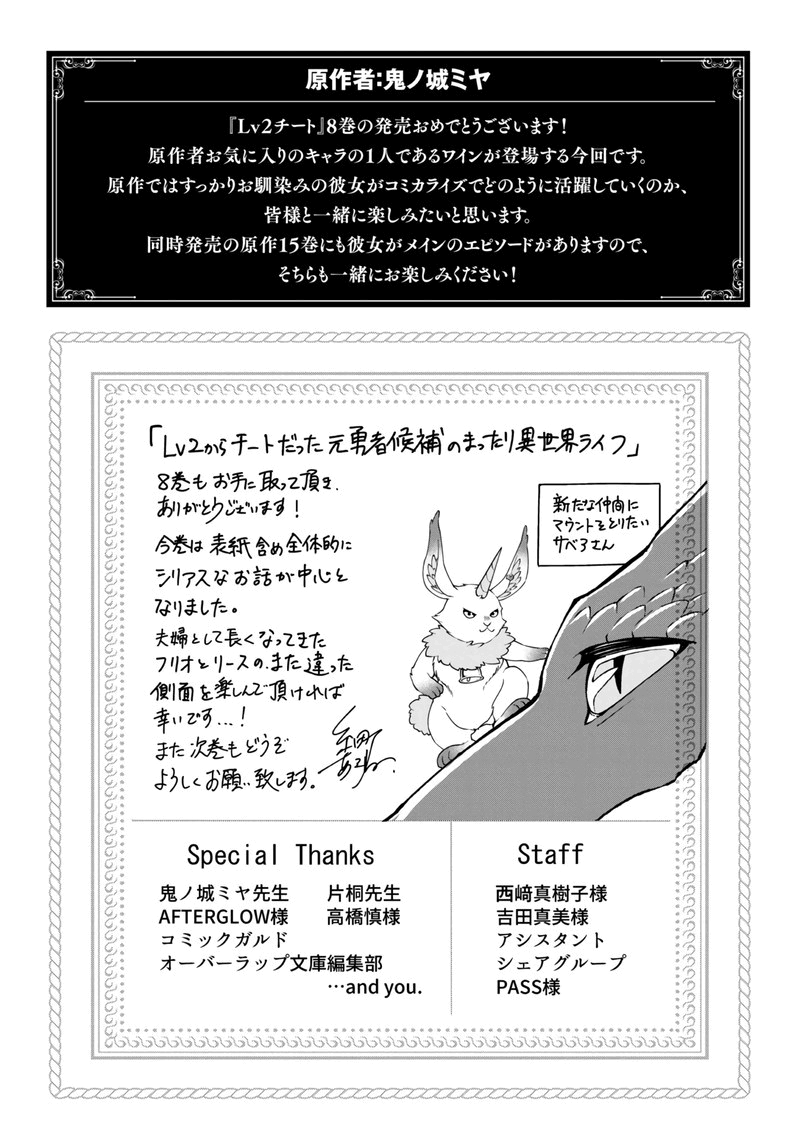 原作者:鬼ノ城ミヤ
『Lv2チート』8巻の発売おめでとうございます!
原作者お気に入りのキャラの1人であるワインが登場する今回です。
原作ではすっかりお馴染みの彼女がコミカライズでどのように活躍していくのか、
皆様と一緒に楽しみたいと思います。
同時発売の原作15巻にも彼女がメインのエピソードがありますので、
そちらも一緒にお楽しみください!
「Lv2からチートだった元勇者候補のまったり異世界ライフ」
8巻もお手に取って頂き
ありがとうございます!
今巻は表紙含め全体的に
シリアスなお話が中心と
なりました。
夫婦として長くなってきた
フリオとリースの、また違った
側面を楽しんで頂ければ
幸いです...!
また次巻もどうぞ
よろしくお願い致します。
新たな仲間に
マウントをとりたい
サベアさん
Special Thanks
鬼ノ城ミヤ先生 片桐先生
AFTERGLOW様 高橋慎様
コミックガルド
オーバーラップ文庫編集部
…and you.
Staff
西﨑真樹子様
吉田真美様
アシスタント
シェアグループ
PASS様